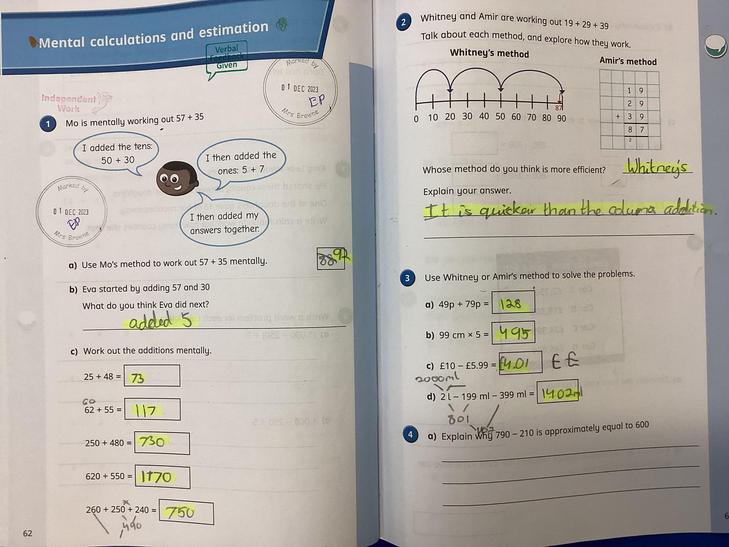 Mental calculations and estimation
Verbal
Feedback
Given
Marked by
01 DEC 2023
EP
Mrs Browne
Independent
Work
1 Mo is mentally working out 57 + 35
I added the tens:
50 + 30
I then added the
ones: 5 + 7
I then added my
answers together.
Marked by
01 DEC 2023
EP
Mrs Browne
a) Use Mo's method to work out 57 + 35 mentally.
92
b) Eva started by adding 57 and 30
What do you think Eva did next?
added 5
c) Work out the additions mentally.
25 + 48 = 73
60
62 + 55 = 117
250 + 480 = 730
620 + 550 = 1170
260 + 250 + 240 = 750
490
62
2 Whitney and Amir are working out 19 + 29 + 39
Talk about each method, and explore how they work.
Whitney's method
87
0 10 20 30 40 50 60 70 80 90
Amir's method
1 9
2 9
+ 3 9
8 7
2
Whose method do you think is more efficient? Whitney's
Explain your answer.
It is quicker than the column addition.
3 Use Whitney or Amir's method to solve the problems.
a) 49p + 79p = 128
b) 99 cm × 5 = 495
c) £10 – £5.99 = £4.01 £ £
2000ml
d) 2 l – 199 ml – 399 ml = 1402ml
801
4 a) Explain why 790 – 210 is approximately equal to 600